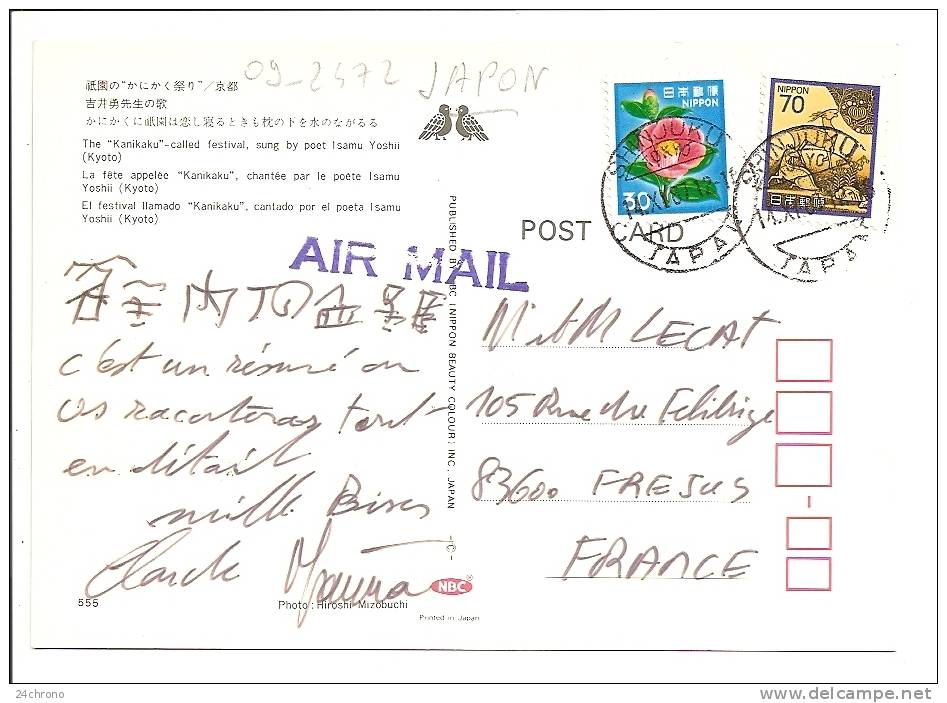 09-2472 JAPON
祇園の"かにかく祭り"/京都
吉井勇先生の歌
かにかくに祇園は恋し寝るときも枕の下を水のながるる
The "Kanikaku"-called festival, sung by poet Isamu Yoshii
(Kyoto)
La fête appelée "Kanikaku", chantée par le poète Isamu
Yoshii (Kyoto)
El festival llamado "Kanikaku", cantado por el poeta Isamu
Yoshii (Kyoto)
日本郵便
NIPPON
30
NIPPON
70
日本郵便
SHINJUKU
TOKYO
JAPAN
SHINJUKU
TOKYO
JAPAN
POST CARD
AIR MAIL
c'est un résumé on
vs racontera tout
en détail
mille Bises
PUBLISHED BY NBC (NIPPON BEAUTY COLOUR; INC., JAPAN -©-
M et M LECAT
105 Rue du Felibrige
83600 FREJUS
FRANCE
NBC®
555
Photo: Hiroshi Mizobuchi
Printed in Japan
24chrono
delcampe.net